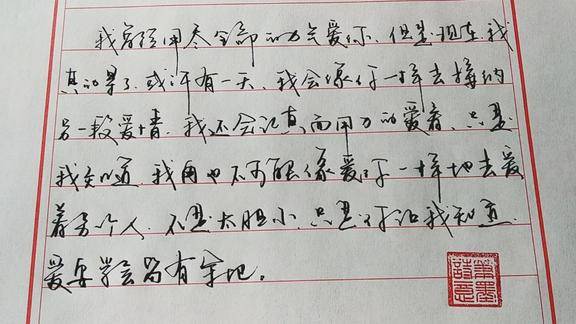 我曾经用尽全部的力气爱你，但是现在，我
真的累了，或许有一天，我会像你一样去接纳
另一段爱情，我还会认真而用力的爱着，只是
我知道，我再也不可能像爱你一样地去爱
着另个人，不是太胆小，只是你让我知道，
爱要学会留有余地。
笔墨诗意